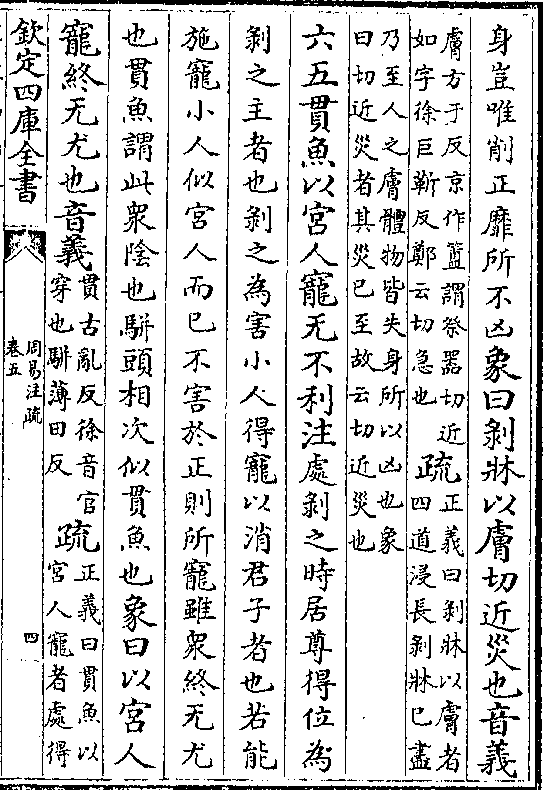 身豈唯削正靡所不凶象曰剝牀以膚切近災也音義
膚方于反京作簠謂祭器切近
如字徐巨靳反鄭云切急也
疏
正義曰剝牀以膚者
四道浸長剝牀已盡
乃至人之膚體物皆失身所以凶也象
曰切近災者其災已至故云切近災也
六五貫魚以宮人寵无不利注處剝之時居尊得位為
剝之主者也剝之為害小人得寵以消君子者也若能
施寵小人似宮人而已不害於正則所寵雖衆終无尤
也貫魚謂此衆陰也駢頭相次似貫魚也象曰以宮人
寵終无尤也音義
貫古亂反徐音官
穿也駢薄田反
疏
正義曰貫魚以
宮人寵者處得
欽定四庫全書
周易注疏
卷五
四